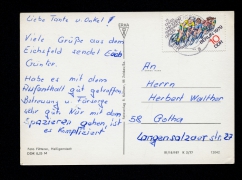 Liebe Tante u. Onkel!
Viele Grüße aus dem
Eichsfeld sendet Euch
Günter.
Habe es mit dem
Aufenthalt gut getroffen,
Betreuung u. Fürsorge
sehr gut. Nur mit dem
Spazieren gehen, ist
es kompliziert
An
Herrn
Herbert Walther
58 Gotha
Langensalzaer str. 27
DDR